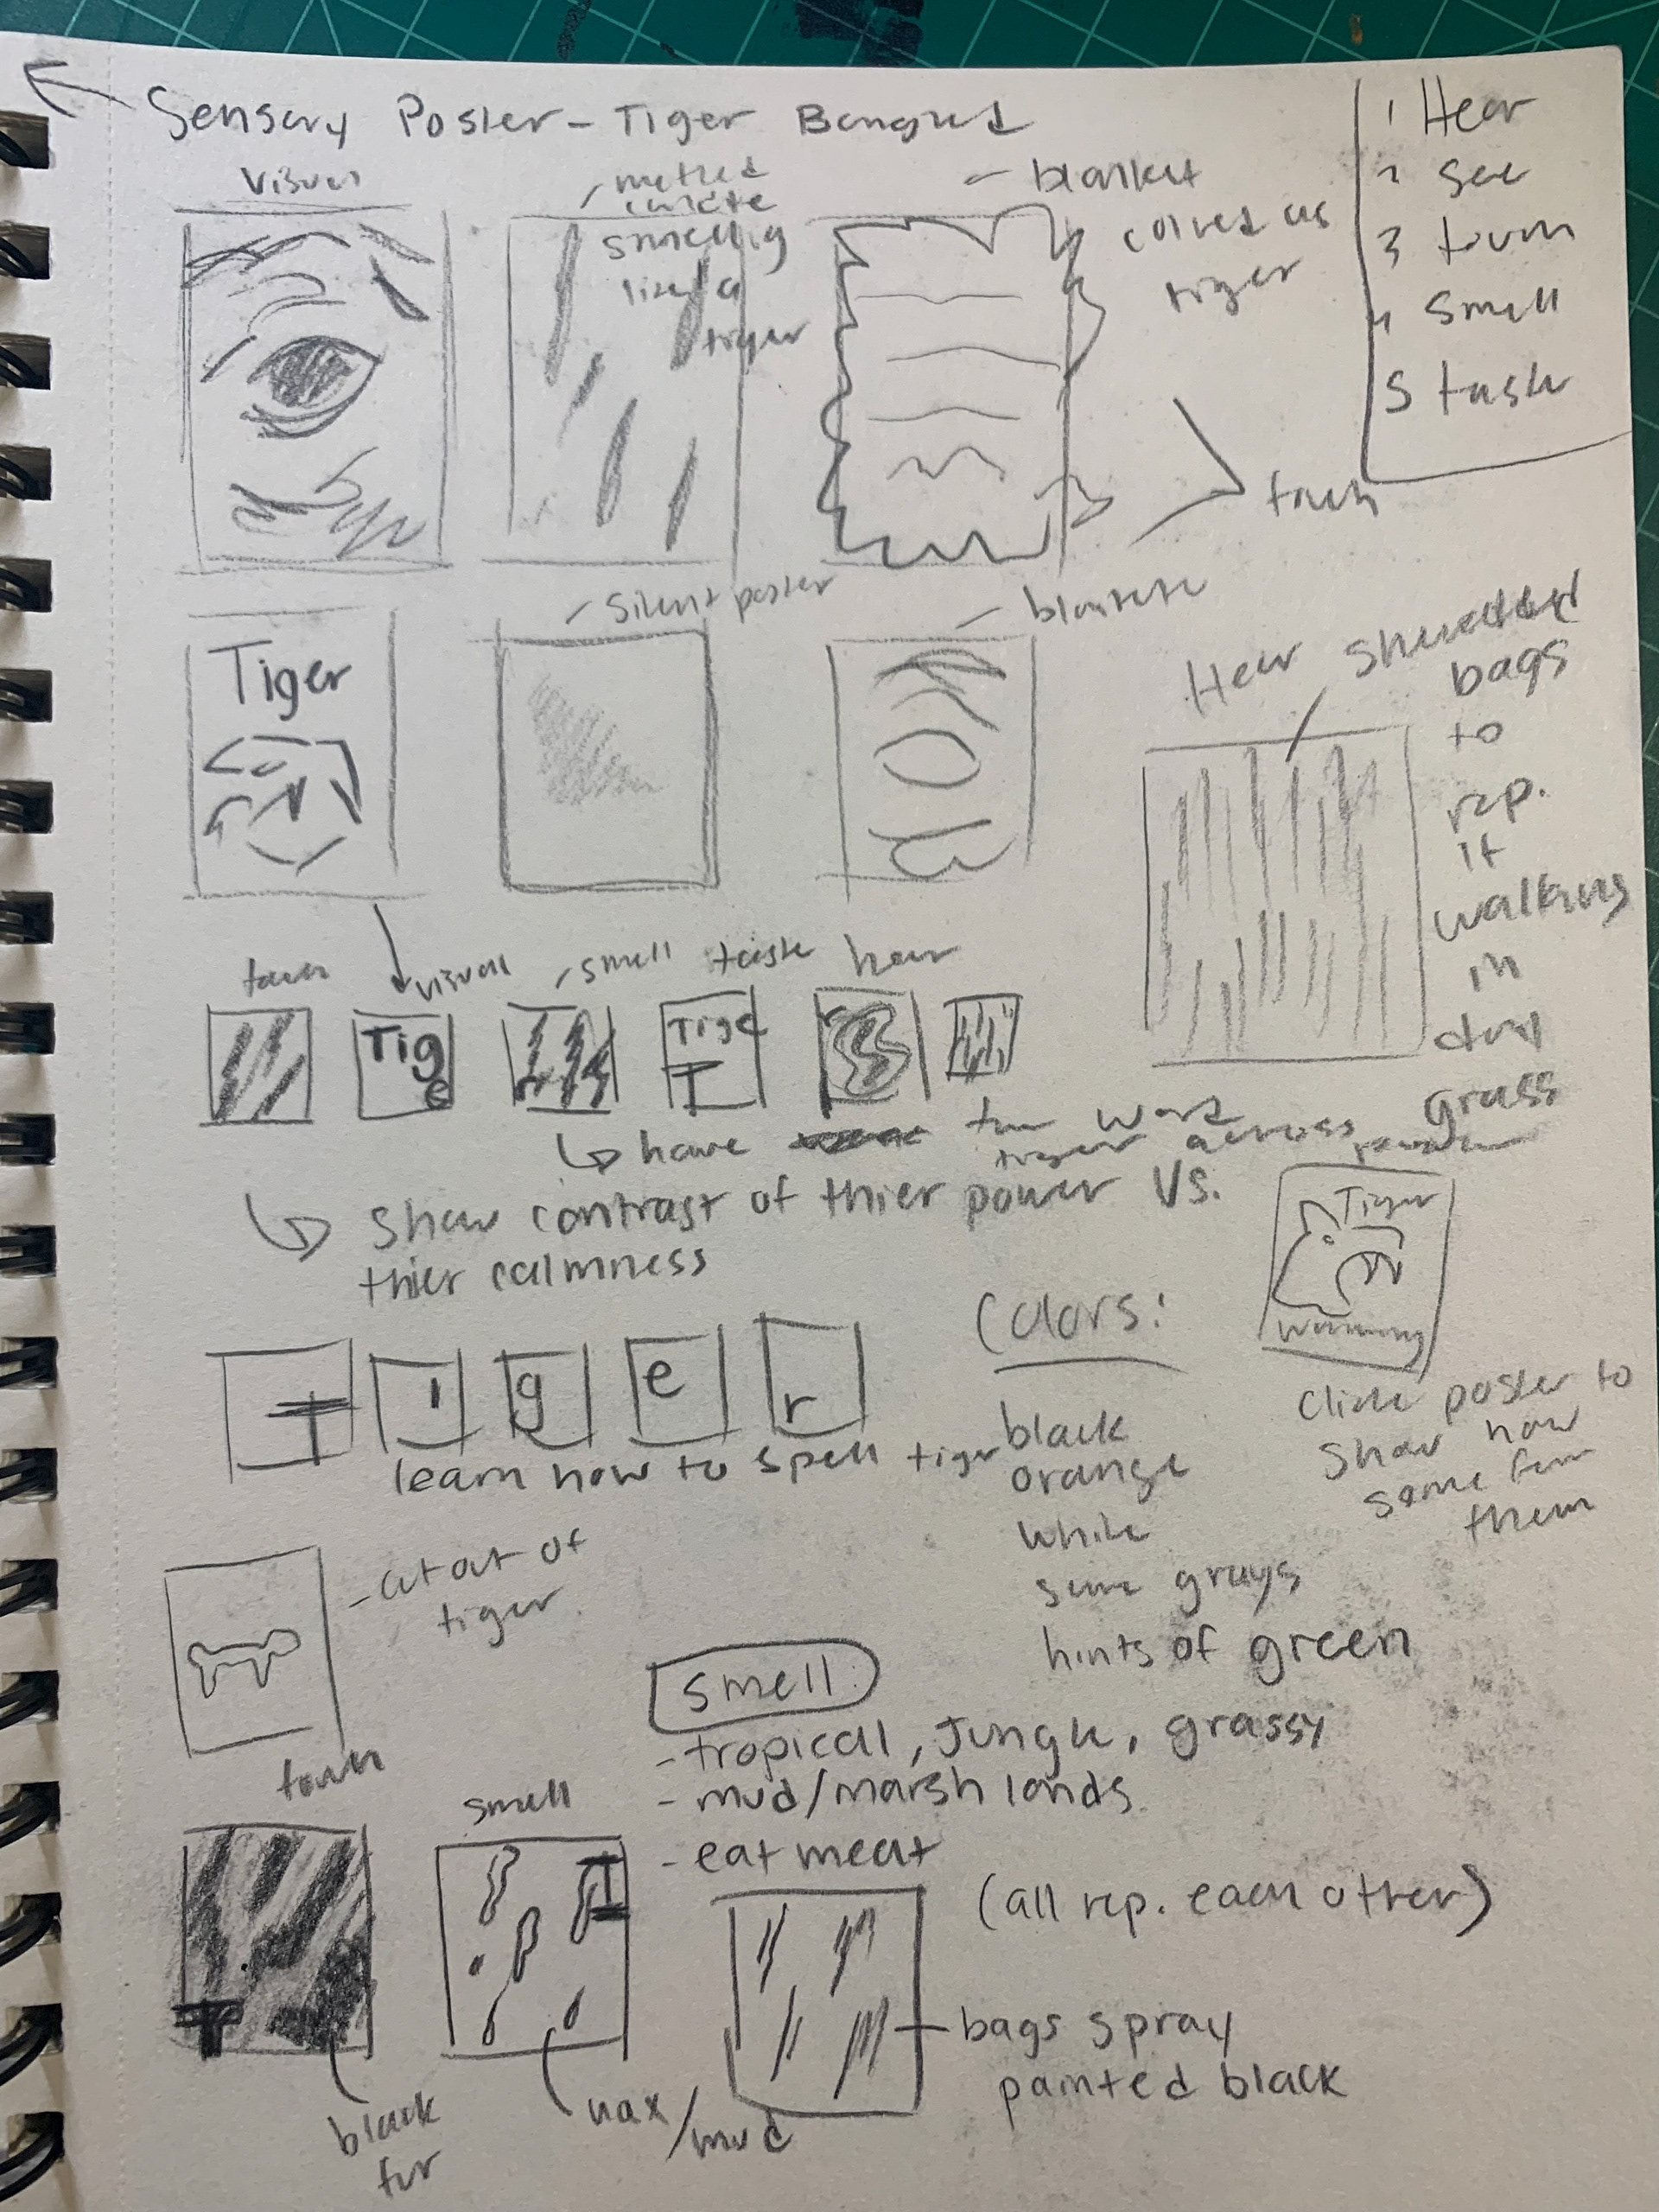 Sensory Poster - Tiger
1 Hear
2 see
3 touch
4 smell
5 taste
visual
- melted
candle
smelling
like a
tiger
- blanket
colored as
tiger
touch
- Silent poster
- blankete
Tiger
Hear shredded
bags
to
rep.
it
walking
in
dry
grass
touch
visual
- smell
taste
hear
Tig
e
Tige
T
have the word
tiger across
show contrast of thier power vs.
thier calmness
Tiger
warning
T i g e r
learn how to spell tiger
Colors:
black
orange
white
some grays
hints of green
click poster to
show how
some fear
them
- cut out of
tiger
touch
smell
- tropical, Jungle, grassy
- mud/marsh lands
- eat meat
smell
T
T
(all rep. each other)
bags spray
painted black
black
fur
wax/
mud